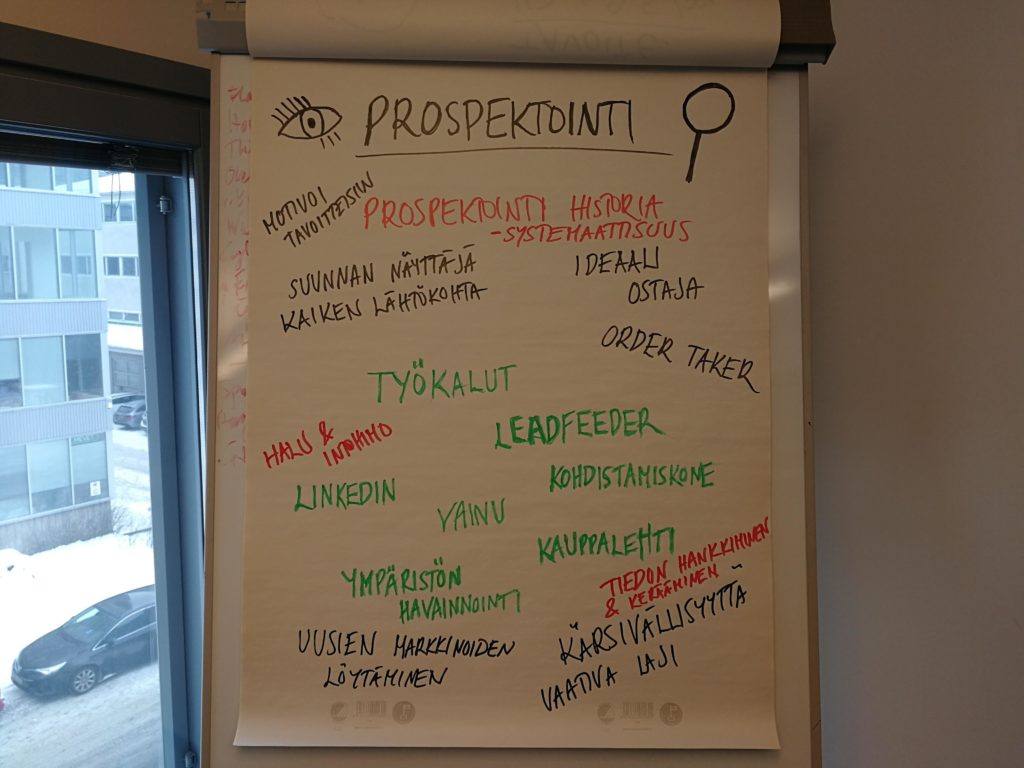 PROSPEKTOINTI
MOTIVOI
TAVOITTEISIIN
PROSPEKTOINTI HISTORIA
-SYSTEMAATTISUUS
SUUNNAN NÄYTTÄJÄ
KAIKEN LÄHTÖKOHTA
IDEAALI
OSTAJA
ORDER TAKER
TYÖKALUT
LEADFEEDER
HALU &
INTOHIMO
LINKEDIN
KOHDISTAMISKONE
VAINU
KAUPPALEHTI
YMPÄRISTÖN
HAVAINNOINTI
TIEDON HANKKIMINEN
& KERÄÄMINEN
UUSIEN MARKKINOIDEN
LÖYTÄMINEN
KÄRSIVÄLLISYYTTÄ
VAATIVA LAJI